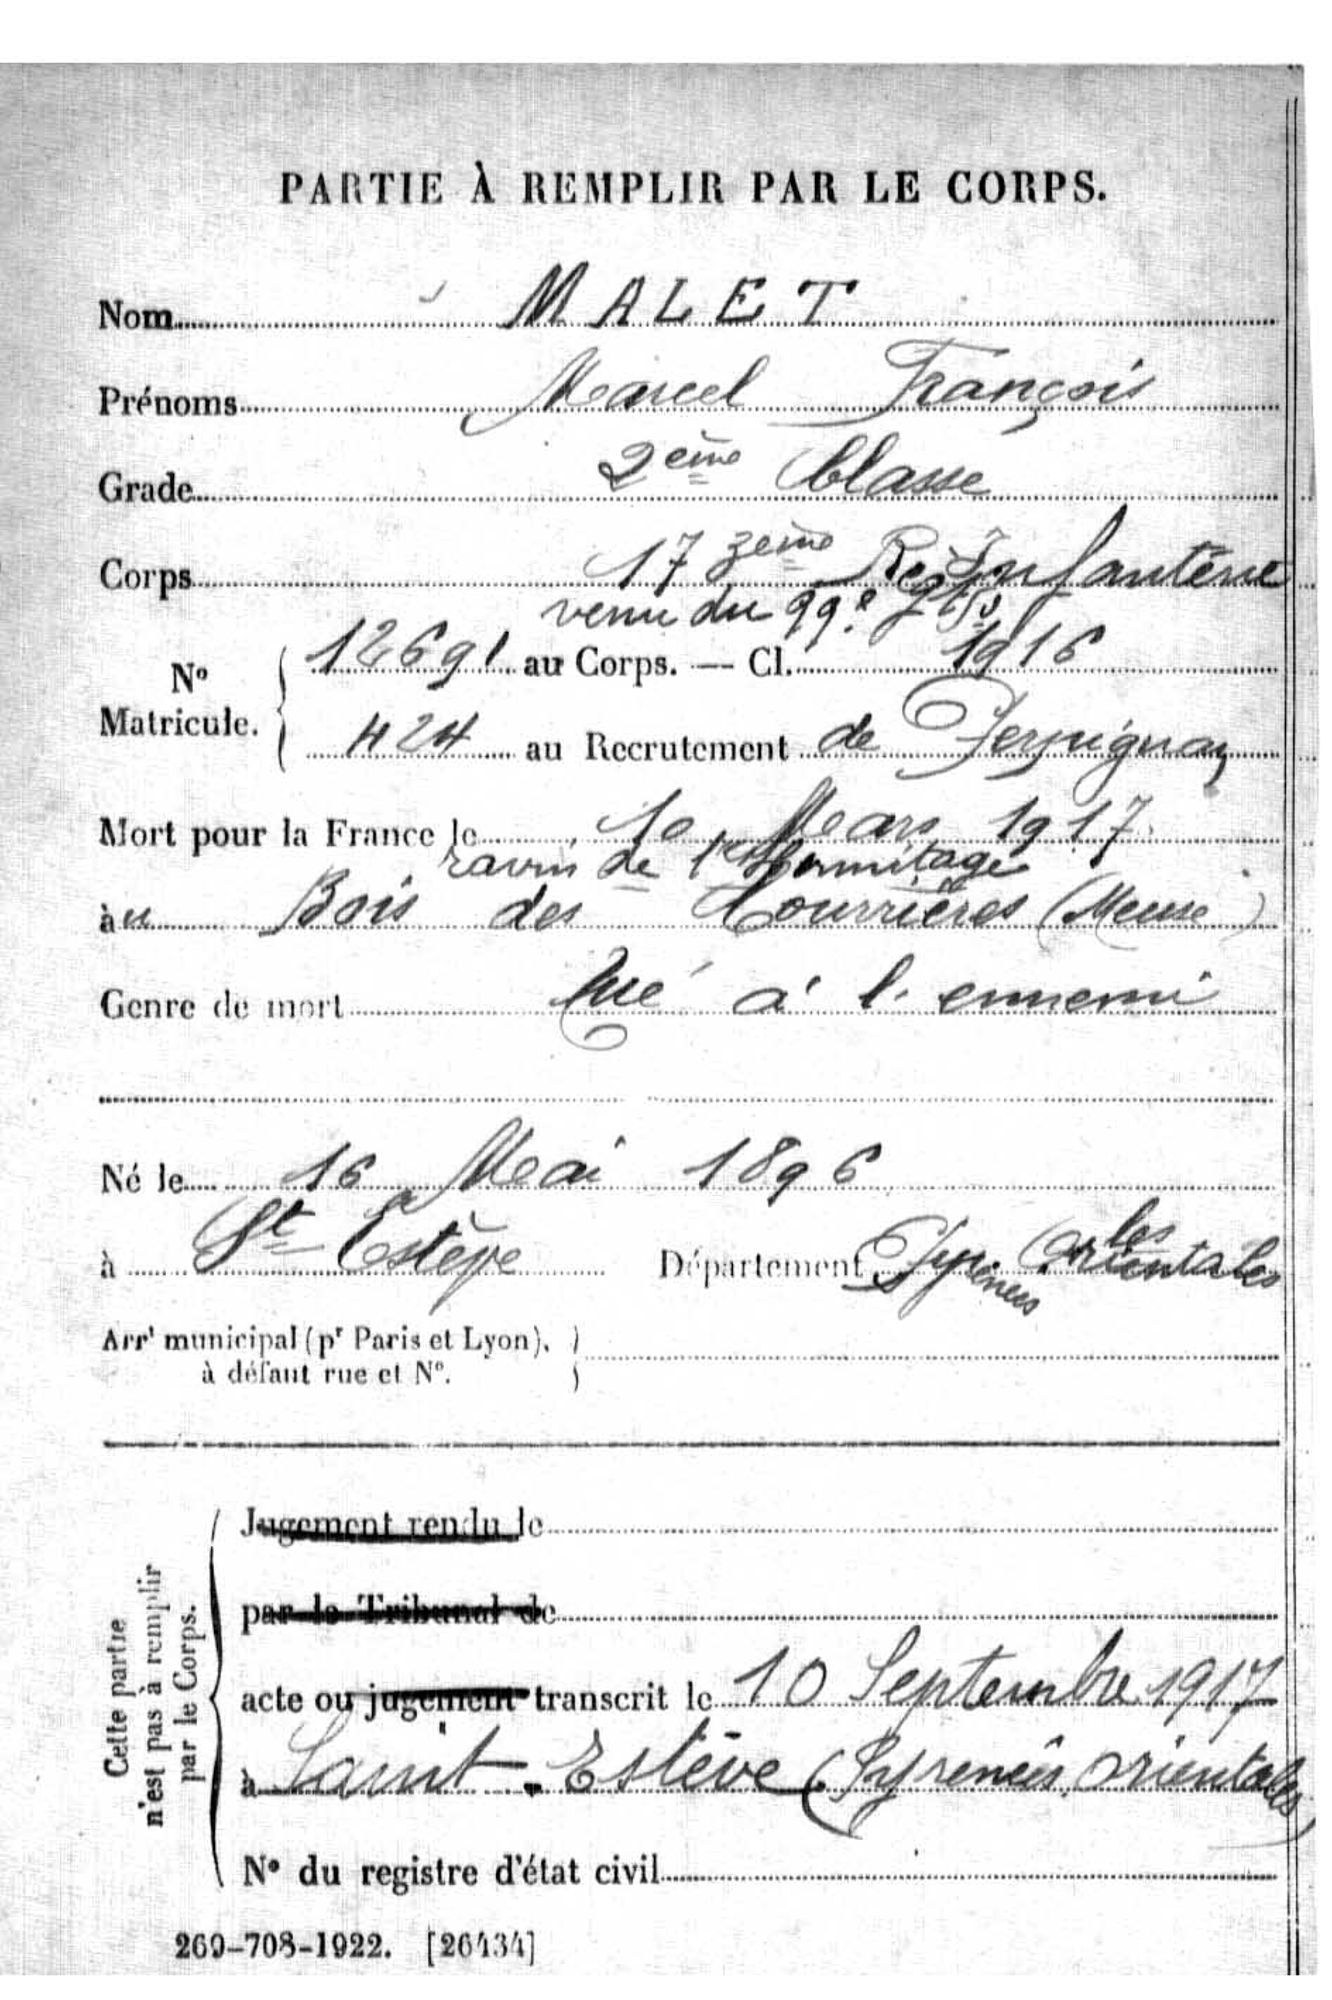 PARTIE À REMPLIR PAR LE CORPS.
Nom MALET
Prénoms Marcel François
Grade 2ème Classe
Corps 173ème Reg Infanterie
venu du 99e
12691 au Corps. — Cl. 1916
N°
Matricule.
424 au Recrutement de Perpignan
Mort pour la France le 10 Mars 1917
ravin de l'Hermitage
àu Bois des Courrières (Meuse)
Genre de mort Tué à l'ennemi
Né le 16 Mai 1896
à St Estève Département Pyrénées Orientales
Arrt municipal (pr Paris et Lyon),
à défaut rue et N°.
Jugement rendu le
par le Tribunal de
acte ou jugement transcrit le 10 Septembre 1917
à Saint-Estève (Pyrenées orientales)
N° du registre d'état civil
Cette partie
n'est pas à remplir
par le Corps.
269-708-1922. [26434]